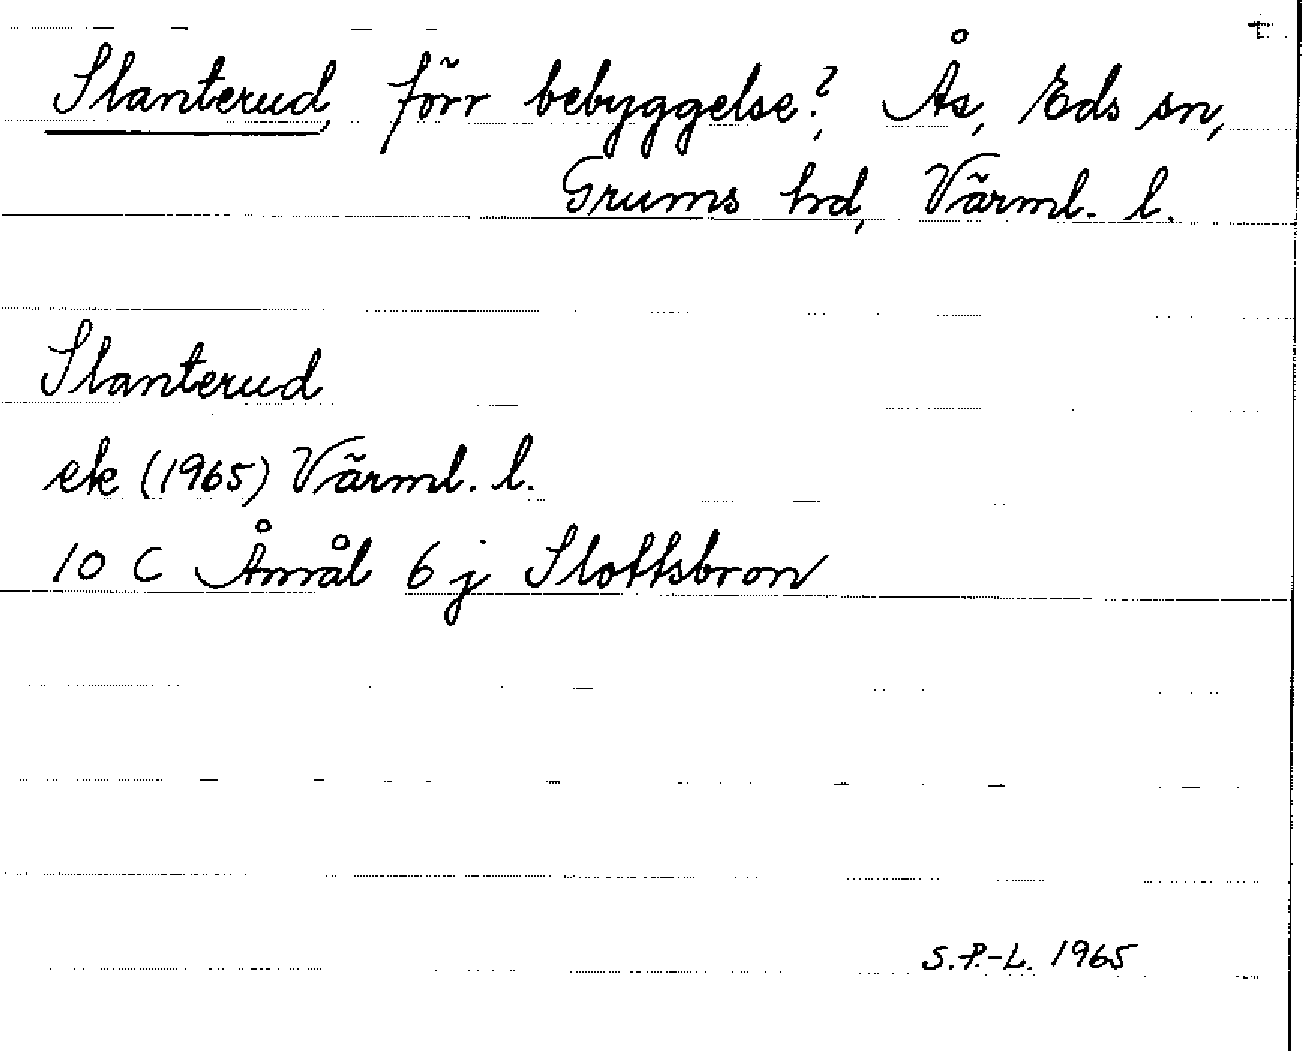 Slanterud, förr bebyggelse?, Ås, Eds sn,
Grums hd, Värml. l.
Slanterud
ek (1965) Värml. l.
10 C Åmål 6 j Slottsbron
S.P.-L. 1965